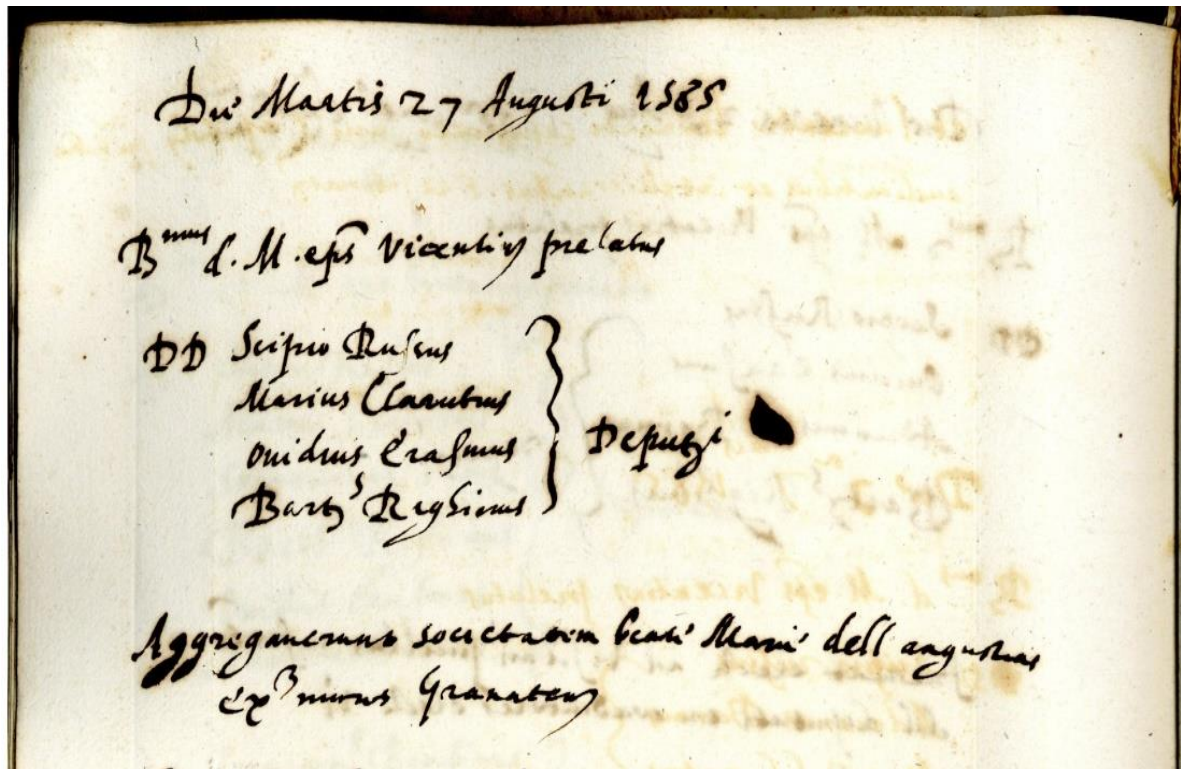 Die Martis 27 Augusti 1585
R^mus d. M. eps Vicentius prelatus
DD Scipio Rufeus
Marius
Ouidius Erasmus
Bart^s Reghinus
Deput^i
Aggregauerunt societatem beate Marie dell angustias
ex^a muros Granaten